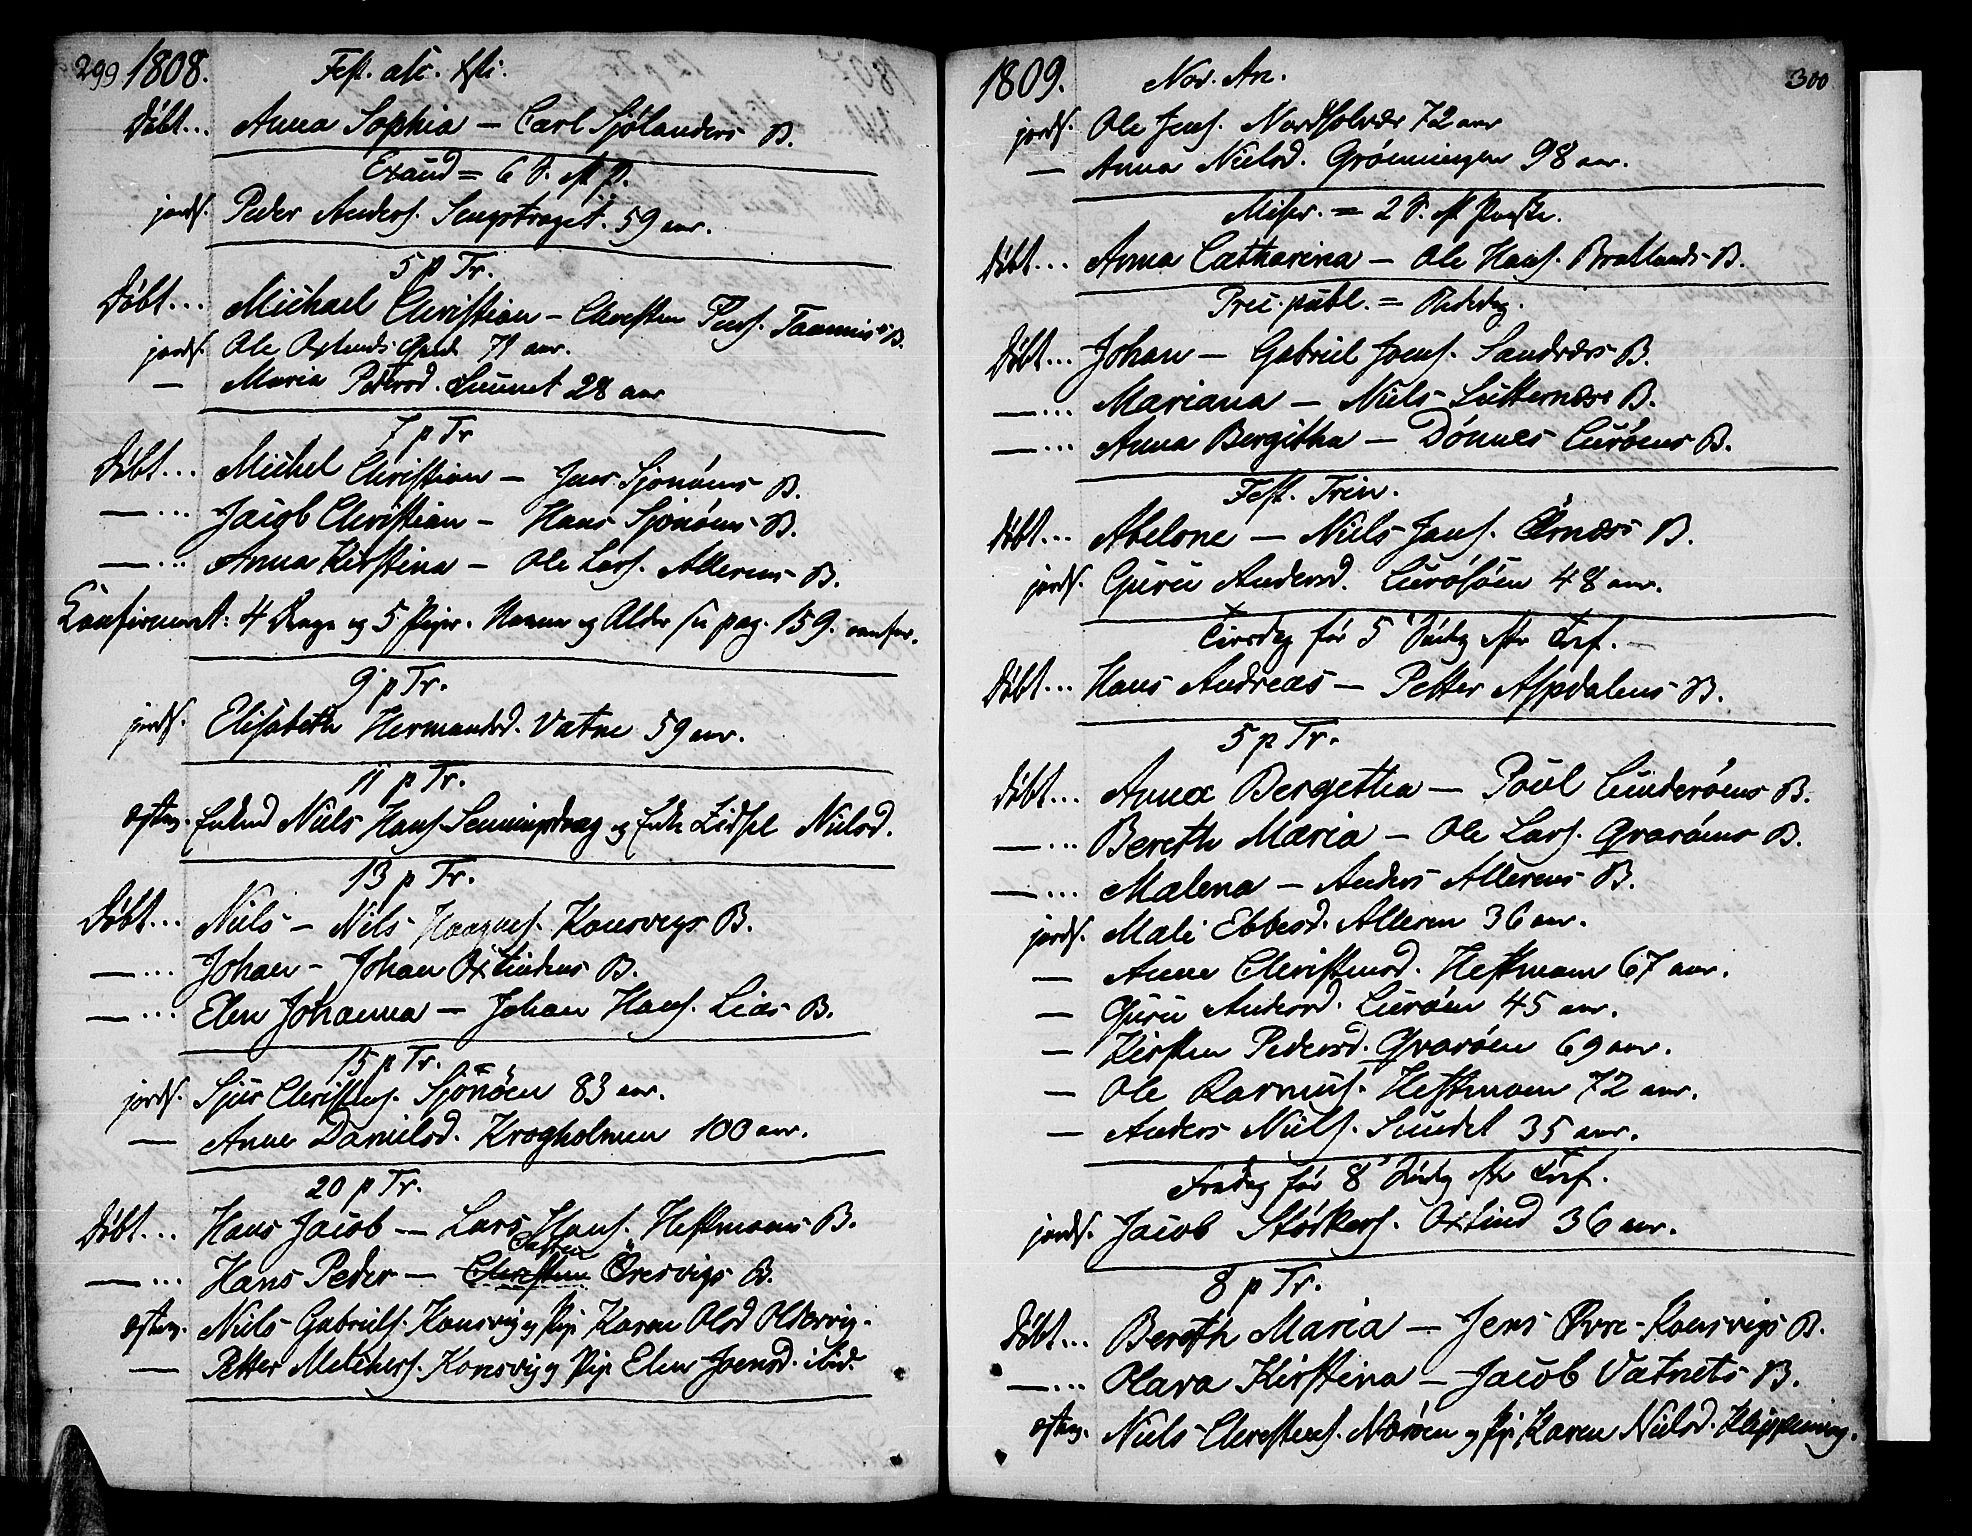 299 1808. Fest. asc. Xsti.
Døbt... Anna Sophia - Carl Sjølanders B.
Exaud = 6 S. P.
jords. Peder Anders. 59 aar.
5 p Tr.
Døbt... Michael Christian - Christen B.
jords. Ole 71 aar.
— Maria Pedersd. Sundet 28 aar
7 p Tr
Døbt... Michel Christian - Jens Sjonøens B.
—... Jacob Christian - Hans Sjonøens B.
—... Anna Kirstina - Ole Lars. Alderens B.
Confirmeret: 4 Drenge og 5 Piger. Navne og Alder see pag. 159.
9 p Tr.
jords. Elisabeth Hermansd. Vatne 59 aar.
11 p Tr.
Niels Hans. og Enke Zidsel Nielsd.
13 p Tr.
Døbt... Niels - Nils Konsvigs B.
—... Johan - Johan Oxtindens B.
—... Elen Johanna - Johan Hans. Lias B.
15 p Tr.
jords. Sjur Christens. Sjonøen 83 aar.
— Anne Danielsd. Krogholmen 100 aar.
20 p Tr.
Døbt... Hans Jacob - Lars Hans. Hestmons B.
—... Hans Peder - Christen Øresvigs B.
Niels Gabriels. Konsvig og Pig. Karen Olsd Oldervig.
— Petter Melchers. Konsvig og Pig. Elen Joensd. ibid.
1809. Nov. An. 300
jords. Ole Jens. Nordsolvær 72 aar
— Anna Nielsd. Grønningen 98 aar.
Miser. = 2 S. eft Paaske.
Døbt... Anna Catharina - Ole Hans. Bratlands B.
Prec publ. = Bededag.
Døbt... Johan - Gabriel Jens. Sandværs B.
—... Mariana - Niels Lutternæss B.
—... Anna Bergitha - Dønnes Lurøens B.
Fest. Trin.
Døbt... Abelone - Niels Jans. Ørnæss B.
jords. Guru Andersd. Lurøsøen 48 aar.
Tirsdag før 5 Søndag eftr Tref.
Døbt... Hans Andreas - Petter Aspdalens B.
5 p Tr.
Døbt... Anna Bergetha - Poul Lunderøens B.
—... Bereth Maria - Ole Lars. Qvarøens B.
—... Malena - Anders Alderens B.
jords. Mali Ebbesd. Alderen 36 aar.
— Anne Christensd. Hestmoen 67 aar.
— Guru Andersd. Lurøen 45 aar.
— Kirsten Pedersd. Qvarøen 69 aar.
— Ole Rasmus. Hestmoen 72 aar.
— Anders Niels. Sundet 35 aar.
Fredag før 8 Søndag eftr Tref.
jords. Jacob Størkers. Oxtind 36 aar.
8 p Tr.
Døbt... Bereth Maria - Jens Øvre-Konsvigs B.
—... Olava Kirstina - Jacob Vatnets B.
Niels Christens. Norøen og Pig. Karen Nielsd. Klippening.